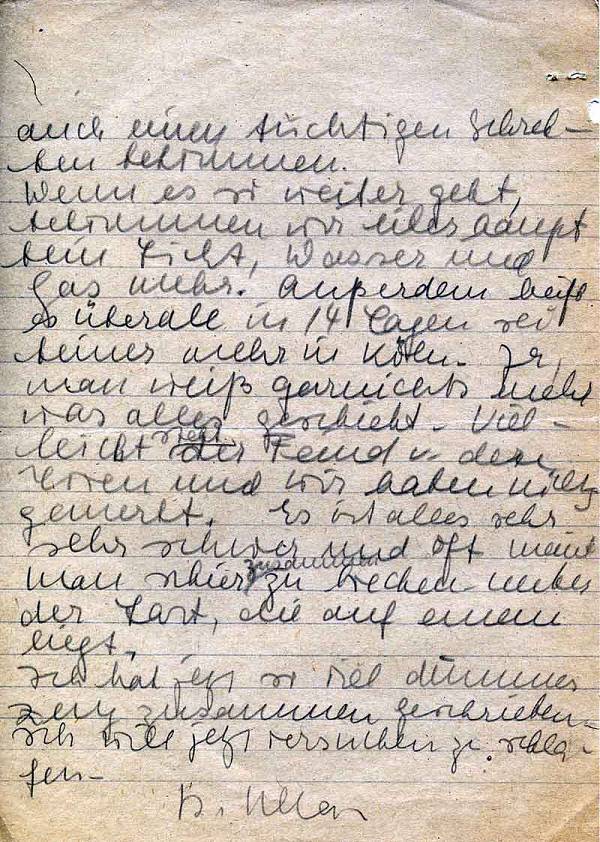 auch einen tüchtigen Schrek-
ken bekommen.
Wenn es so weiter geht,
bekommen wir überhaupt
kein Licht, Wasser und
Gas mehr. Außerdem heißt
es überall in 14 Tagen sei
keiner mehr in Köln. Ja,
man weiß garnichts mehr
was alles geschieht. Viel-
leicht steht der Feind v. den
Toren und wir haben nichts
gemerkt. Es ist alles sehr
sehr schwer und oft meint
man schier zusammen zu brechen unter
der Last, die auf einem
liegt.
Ich hab jetzt so viel dummes
Zeug zusammen geschrieben.
Ich will jetzt versuchen zu schla-
fen-